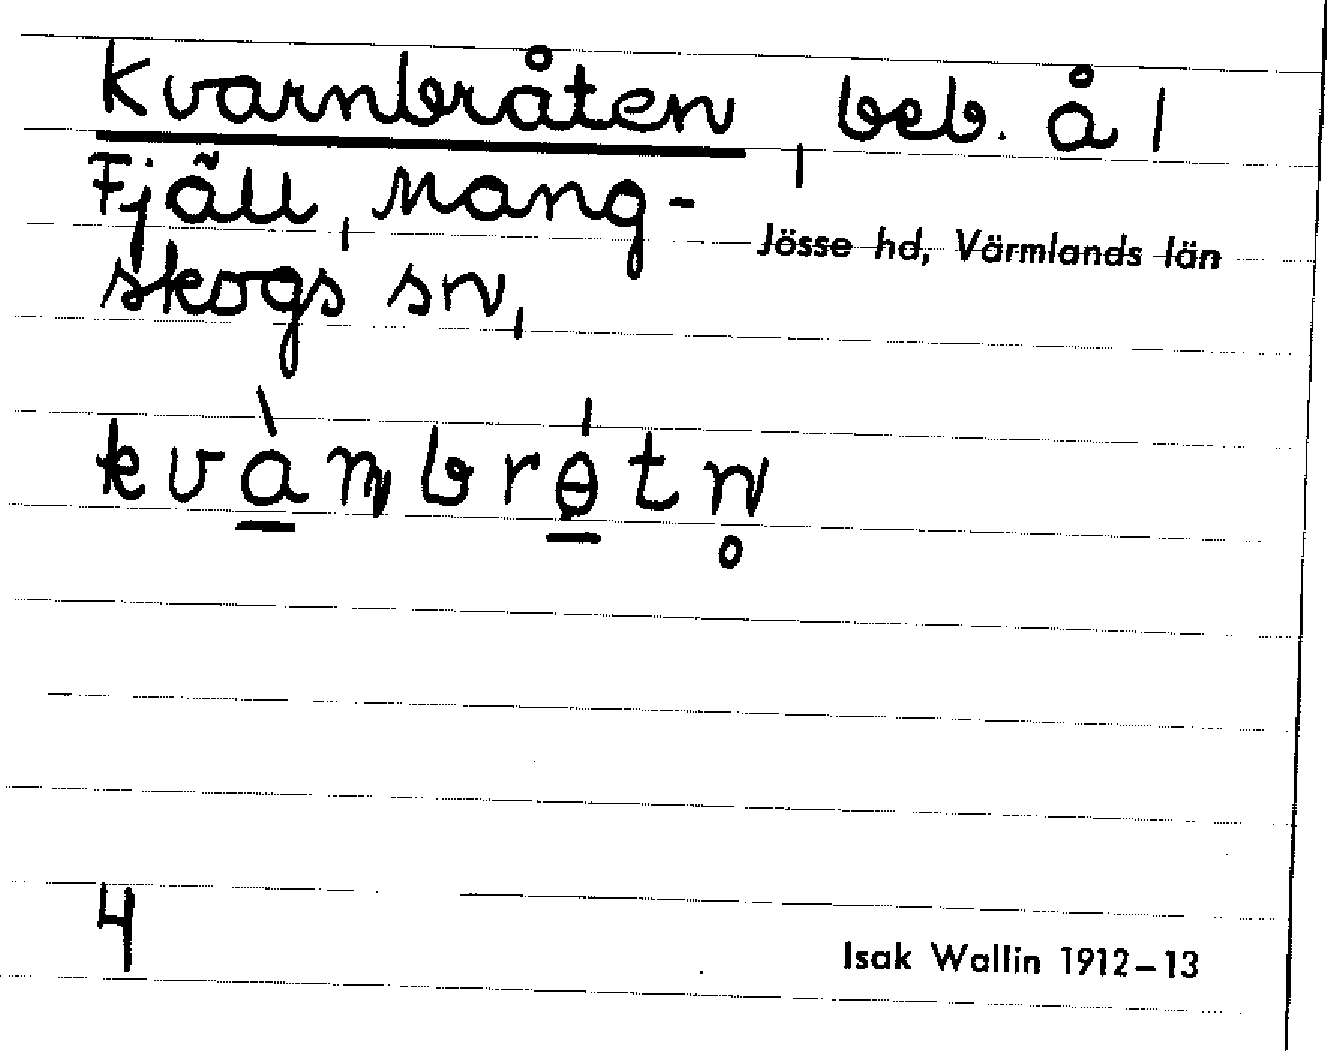 Kvarnbråten, beb. å 1
Fjäll, Mang-
Jösse hd, Värmlands län
skogs sn,
4
Isak Wallin 1912–13